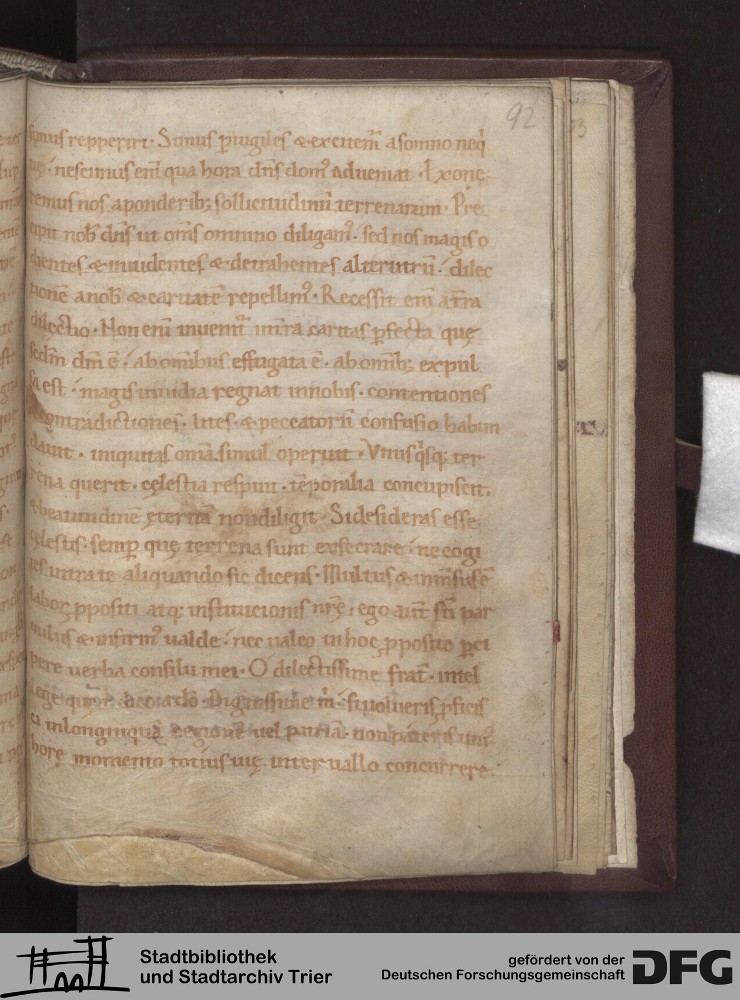 92
simus repperiri · Simus puigiles & excitem̄ a somno neq̇
tię · nescimus em̄ qua hora dn̄s domꝰ adueniat · Exone
remus nos aponderib; sollicitudinū terrenarum · Pre
cipit nob̄ dn̄s ut om̄s omnino diligamꝰ · sed nos magis o
dientes & inuidentes & detrahentes alterutrū · dilec
tionē a nob̄ & caritatē repellimꝰ · Recessit em̄ a tr̄a
dilectio · Non em̄ inuenit᷑ in tr̄a caritas ꝑfecta quę
scd̄m dm̄ ē · ab om̄ibus effugata ē · ab om̄ib; expul
sa est · magis inuidia regnat in nobis · contentiones
contradictiones · lites · & peccatorū confusio habun
dauit · iniquitas om̄a simul operuit · Vnusq̇sq; ter
rena querit · cęlestia respuit · tēporalia concupiscit ·
& beatitudinē ęternā non diligit · Si desideras esse
cęlestis · semꝑ quę terrena sunt exsecrare · ne cogi
tes intra te aliquando sic dicens · Multus & inm̄sus ē
labor ꝓpositi atq; institucionis nr̄ę · ego aut̄ sū par
uulus & infirmꝰ ualde · nec ualeo in hoc ꝓposito ꝑci
pere uerba consilii mei · O dilectissime frat̄ · intel
lege quę
Dignissime m̄ · si uolueris ꝓficis
ci in longinquā regionē uel patriā · non poteris uniꝰ
horę momento totius uię interuallo concurrere ·
Stadtbibliothek
und Stadtarchiv Trier
gefördert von der
Deutschen Forschungsgemeinschaft
DFG